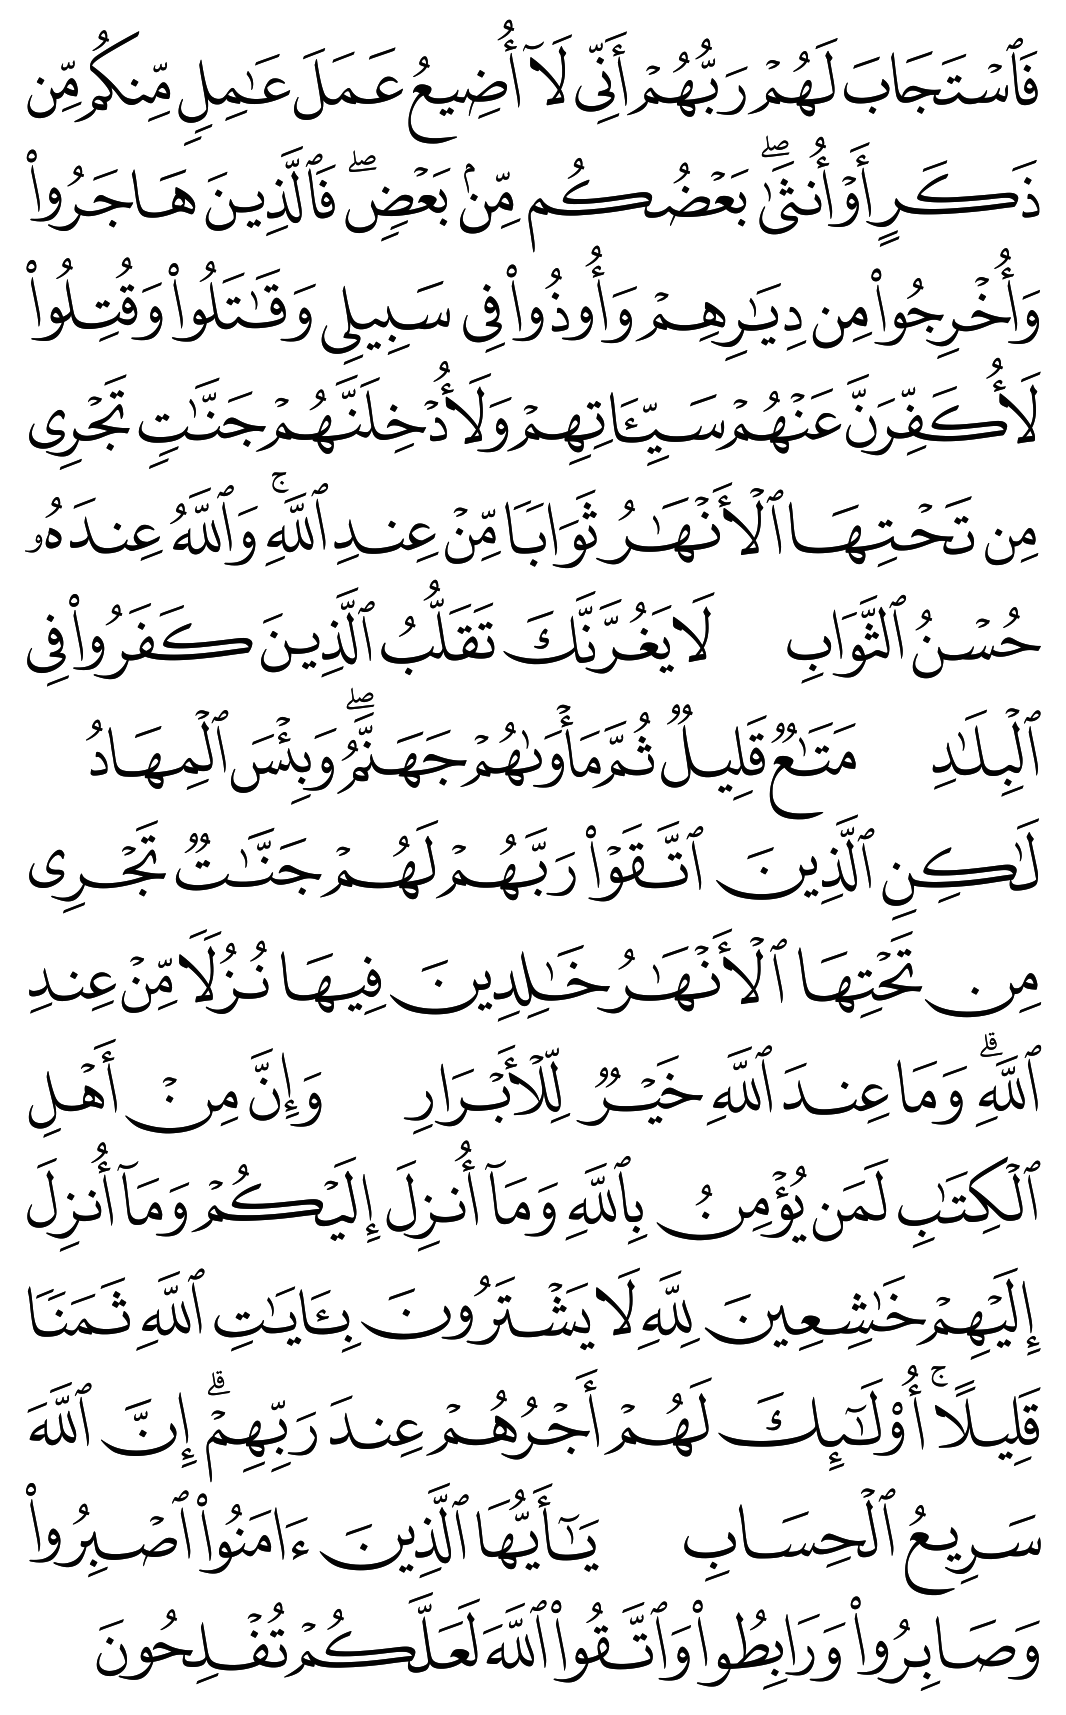 فَٱسْتَجَابَ لَهُمْ رَبُّهُمْ أَنِّى لَآ أُضِيعُ عَمَلَ عَـٰمِلٍ مِّنكُم مِّن
ذَكَرٍ أَوْ أُنثَىٰ ۖ بَعْضُكُم مِّنۢ بَعْضٍ ۖ فَٱلَّذِينَ هَاجَرُوا۟
وَأُخْرِجُوا۟ مِن دِيَـٰرِهِمْ وَأُوذُوا۟ فِى سَبِيلِى وَقَـٰتَلُوا۟ وَقُتِلُوا۟
لَأُكَفِّرَنَّ عَنْهُمْ سَيِّـَٔاتِهِمْ وَلَأُدْخِلَنَّهُمْ جَنَّـٰتٍ تَجْرِى
مِن تَحْتِهَا ٱلْأَنْهَـٰرُ ثَوَابًا مِّنْ عِندِ ٱللَّهِ ۚ وَٱللَّهُ عِندَهُۥ
حُسْنُ ٱلثَّوَابِ لَا يَغُرَّنَّكَ تَقَلُّبُ ٱلَّذِينَ كَفَرُوا۟ فِى
ٱلْبِلَـٰدِ مَتَـٰعٌ قَلِيلٌ ثُمَّ مَأْوَىٰهُمْ جَهَنَّمُ ۖ وَبِئْسَ ٱلْمِهَادُ
لَـٰكِنِ ٱلَّذِينَ ٱتَّقَوْا۟ رَبَّهُمْ لَهُمْ جَنَّـٰتٌ تَجْرِى
مِن تَحْتِهَا ٱلْأَنْهَـٰرُ خَـٰلِدِينَ فِيهَا نُزُلًا مِّنْ عِندِ
ٱللَّهِ ۗ وَمَا عِندَ ٱللَّهِ خَيْرٌ لِّلْأَبْرَارِ وَإِنَّ مِنْ أَهْلِ
ٱلْكِتَـٰبِ لَمَن يُؤْمِنُ بِٱللَّهِ وَمَآ أُنزِلَ إِلَيْكُمْ وَمَآ أُنزِلَ
إِلَيْهِمْ خَـٰشِعِينَ لِلَّهِ لَا يَشْتَرُونَ بِـَٔايَـٰتِ ٱللَّهِ ثَمَنًا
قَلِيلًا ۚ أُو۟لَـٰٓئِكَ لَهُمْ أَجْرُهُمْ عِندَ رَبِّهِمْ ۗ إِنَّ ٱللَّهَ
سَرِيعُ ٱلْحِسَابِ يَـٰٓأَيُّهَا ٱلَّذِينَ ءَامَنُوا۟ ٱصْبِرُوا۟
وَصَابِرُوا۟ وَرَابِطُوا۟ وَٱتَّقُوا۟ ٱللَّهَ لَعَلَّكُمْ تُفْلِحُونَ